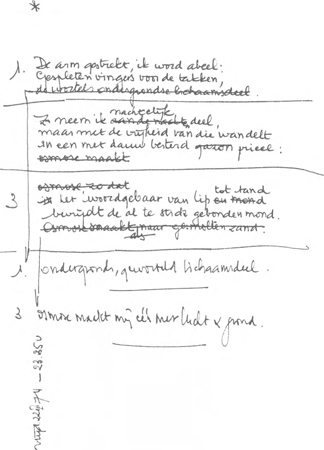 *
1. De arm gestrekt, ik word abeel:
Gespleten vingers voor de takken,
de wortels ondergrondse lichaamsdeel.
nachtelijk
Zo neem ik aan de nacht deel,
maar met de vrijheid van die wandelt
in een met dauw gazon prieel:
osmose maakt
osmose zo dat tot stand
3 het woordgebaar van lip en mond
bevrijdt de al te strak gebonden mond.
Osmose maakt maar gemalen zand.
als
1. ondergronds, geworteld lichaamsdeel.
3 osmose maakt mij één met lucht & grond.